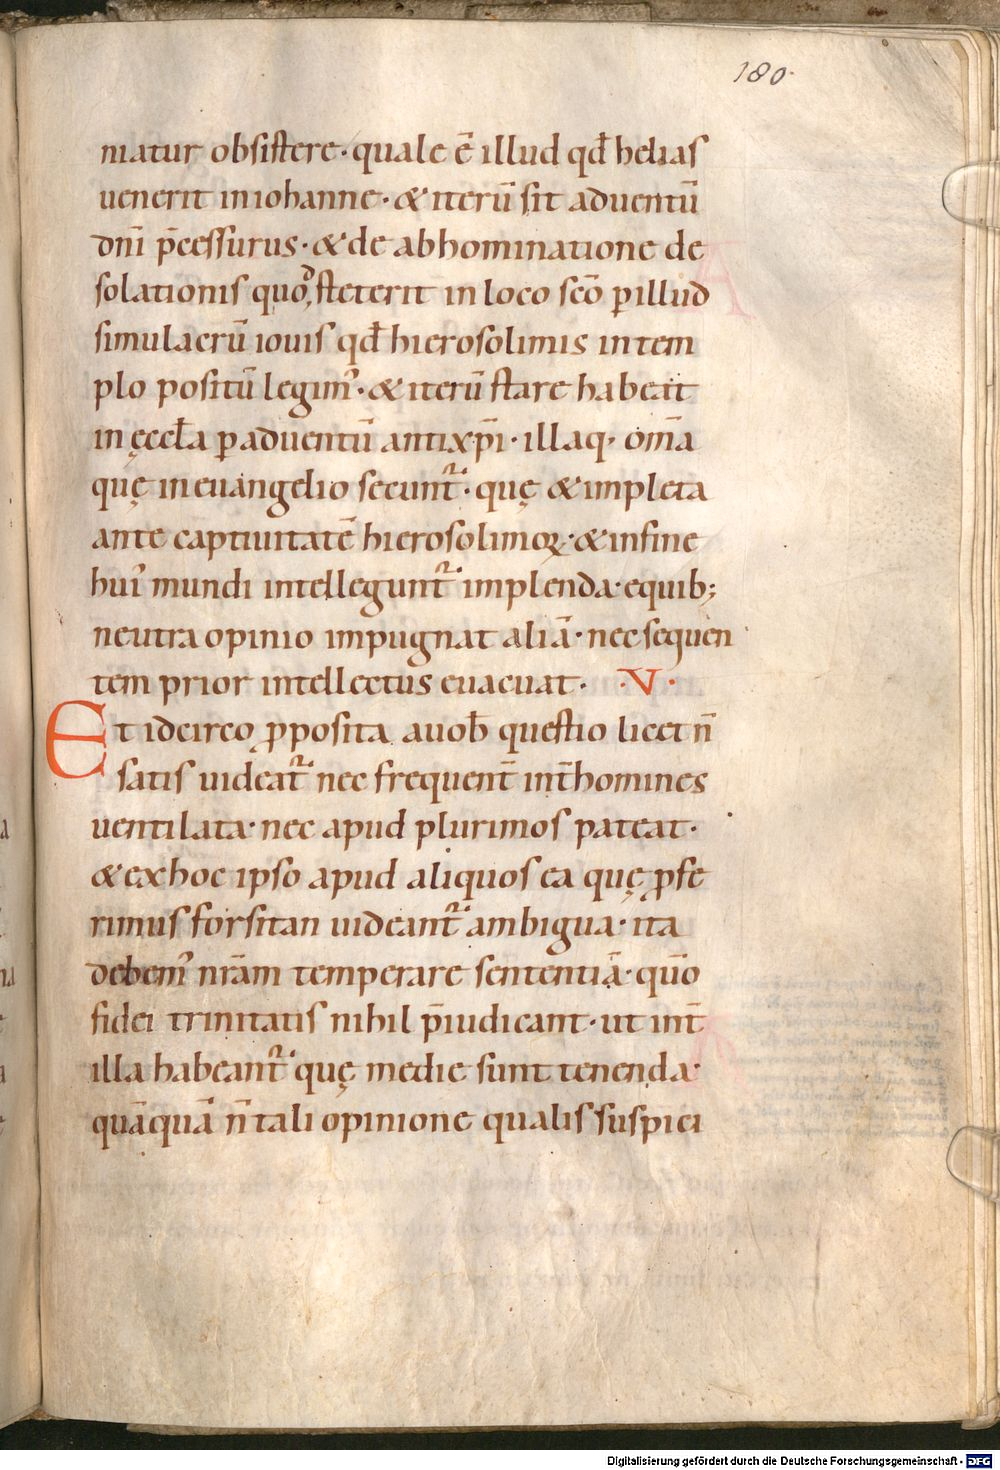 180.
niatur obsistere· quale ē illud qđ helias
uenerit in iohanne· & iterū sit aduentū
dnī p̄cessurus· & de abhominatione de
solationis quom̊ steterit in loco scō p illud
simulacrū iouis qđ hierosolimis in tem
plo positū legim᾿· & iterū stare habeat
in ęccła p aduentū antixp̄i· illaq· om̄a
quę in euangelio secunt᷑· quę & impleta
ante captiuitatē hierosolimoꝝ· & in fine
hui᾿ mundi intellegunt᷑ implenda· e quib;
neutra opinio impugnat aliā· nec sequen
tem prior intellectus euacuat· ·V·
Et idcirco ꝓposita a uob̄ questio licet n̄
satis uideat᷑ nec frequent̄ int̄ homines
uentilata· nec apud plurimos pateat·
& ex hoc ipso apud aliquos ea quę ꝓfe
rimus forsitan uideant᷑ ambigua· ita
debem᾿ nr̄am temperare sententiā· quō
fidei trinitatis nihil p̄iudicant· ut int̄
illa habeant᷑ quę medie sunt tenenda·
quāquā n̄ tali opinione qualis suspici
Digitalisierung gefördert durch die Deutsche Forschungsgemeinschaft - DFG